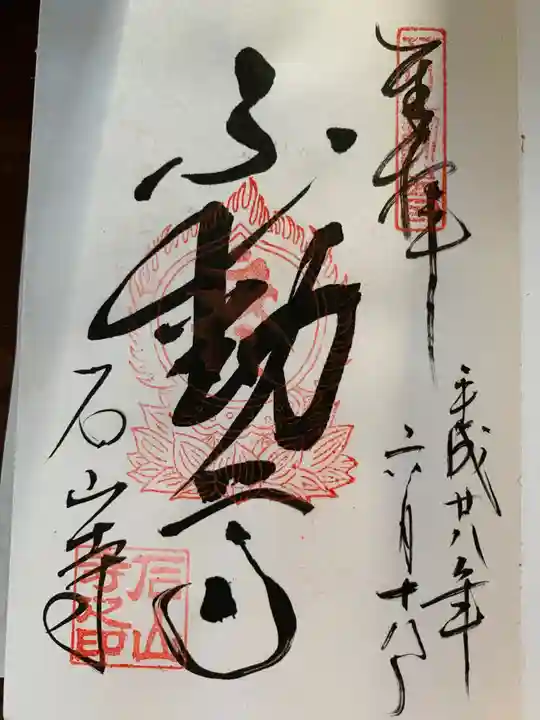 奉拝
平成廿八年
六月十八日
不動尊
石山寺
石山寺之印